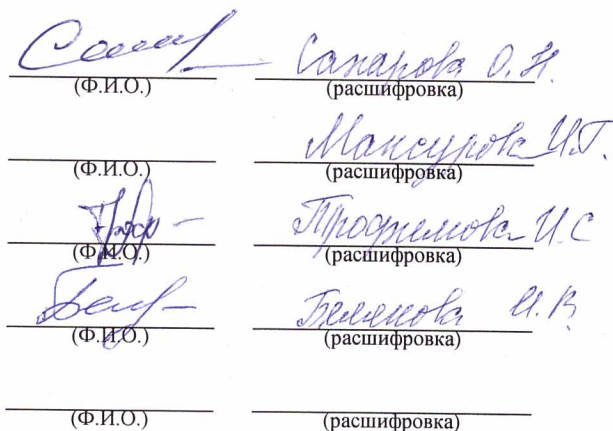 Сахарова О.Н.
(Ф.И.О.) (расшифровка)
Мансурова И.Г.
(Ф.И.О.) (расшифровка)
Трофимова И.С
(Ф.И.О.) (расшифровка)
Белякова И.В.
(Ф.И.О.) (расшифровка)
(Ф.И.О.) (расшифровка)